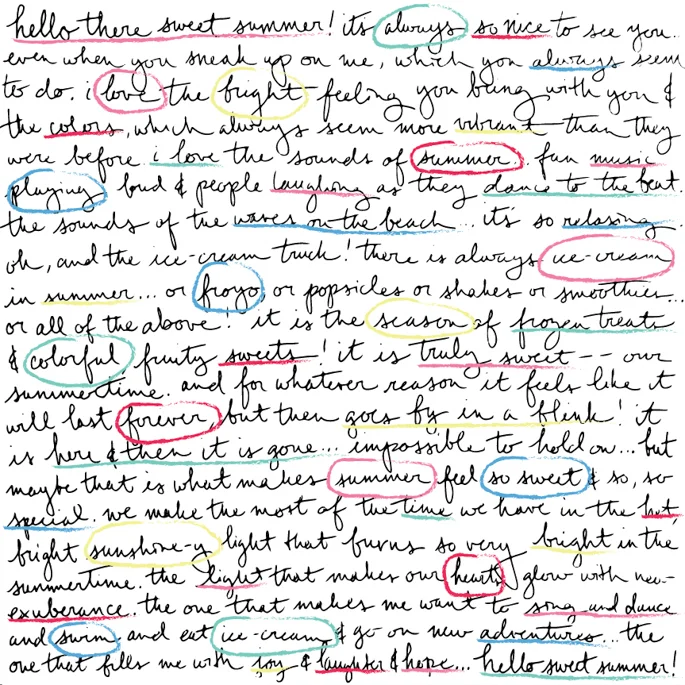 hello there sweet summer! it's always so nice to see you..
even when you sneak up on me, which you always seem
to do. i love the bright feeling you bring with you &
the colors, which always seem more vibrant than they
were before. i love the sounds of summer. fun music
playing loud & people laughing as they dance to the beat.
the sounds of the waves on the beach... it's so relaxing.
oh, and the ice-cream truck! there is always ice-cream
in summer... or froyo, or popsicles or shakes or smoothies...
or all of the above! it is the season of frozen treats
& colorful, fruity sweets! it is truly sweet -- our
summertime. and for whatever reason it feels like it
will last forever, but then goes by in a blink! it
is here & then it is gone... impossible to hold on... but
maybe that is what makes summer feel so sweet & so, so
special. we make the most of the time we have in the hot,
bright sunshine-y light that burns so very bright in the
summertime. the light that makes our hearts glow with new-
exuberance. the one that makes me want to song and dance
and swim and eat ice-cream & go on new adventures... the
one that fills me with joy & laughter & hope... hello sweet summer!